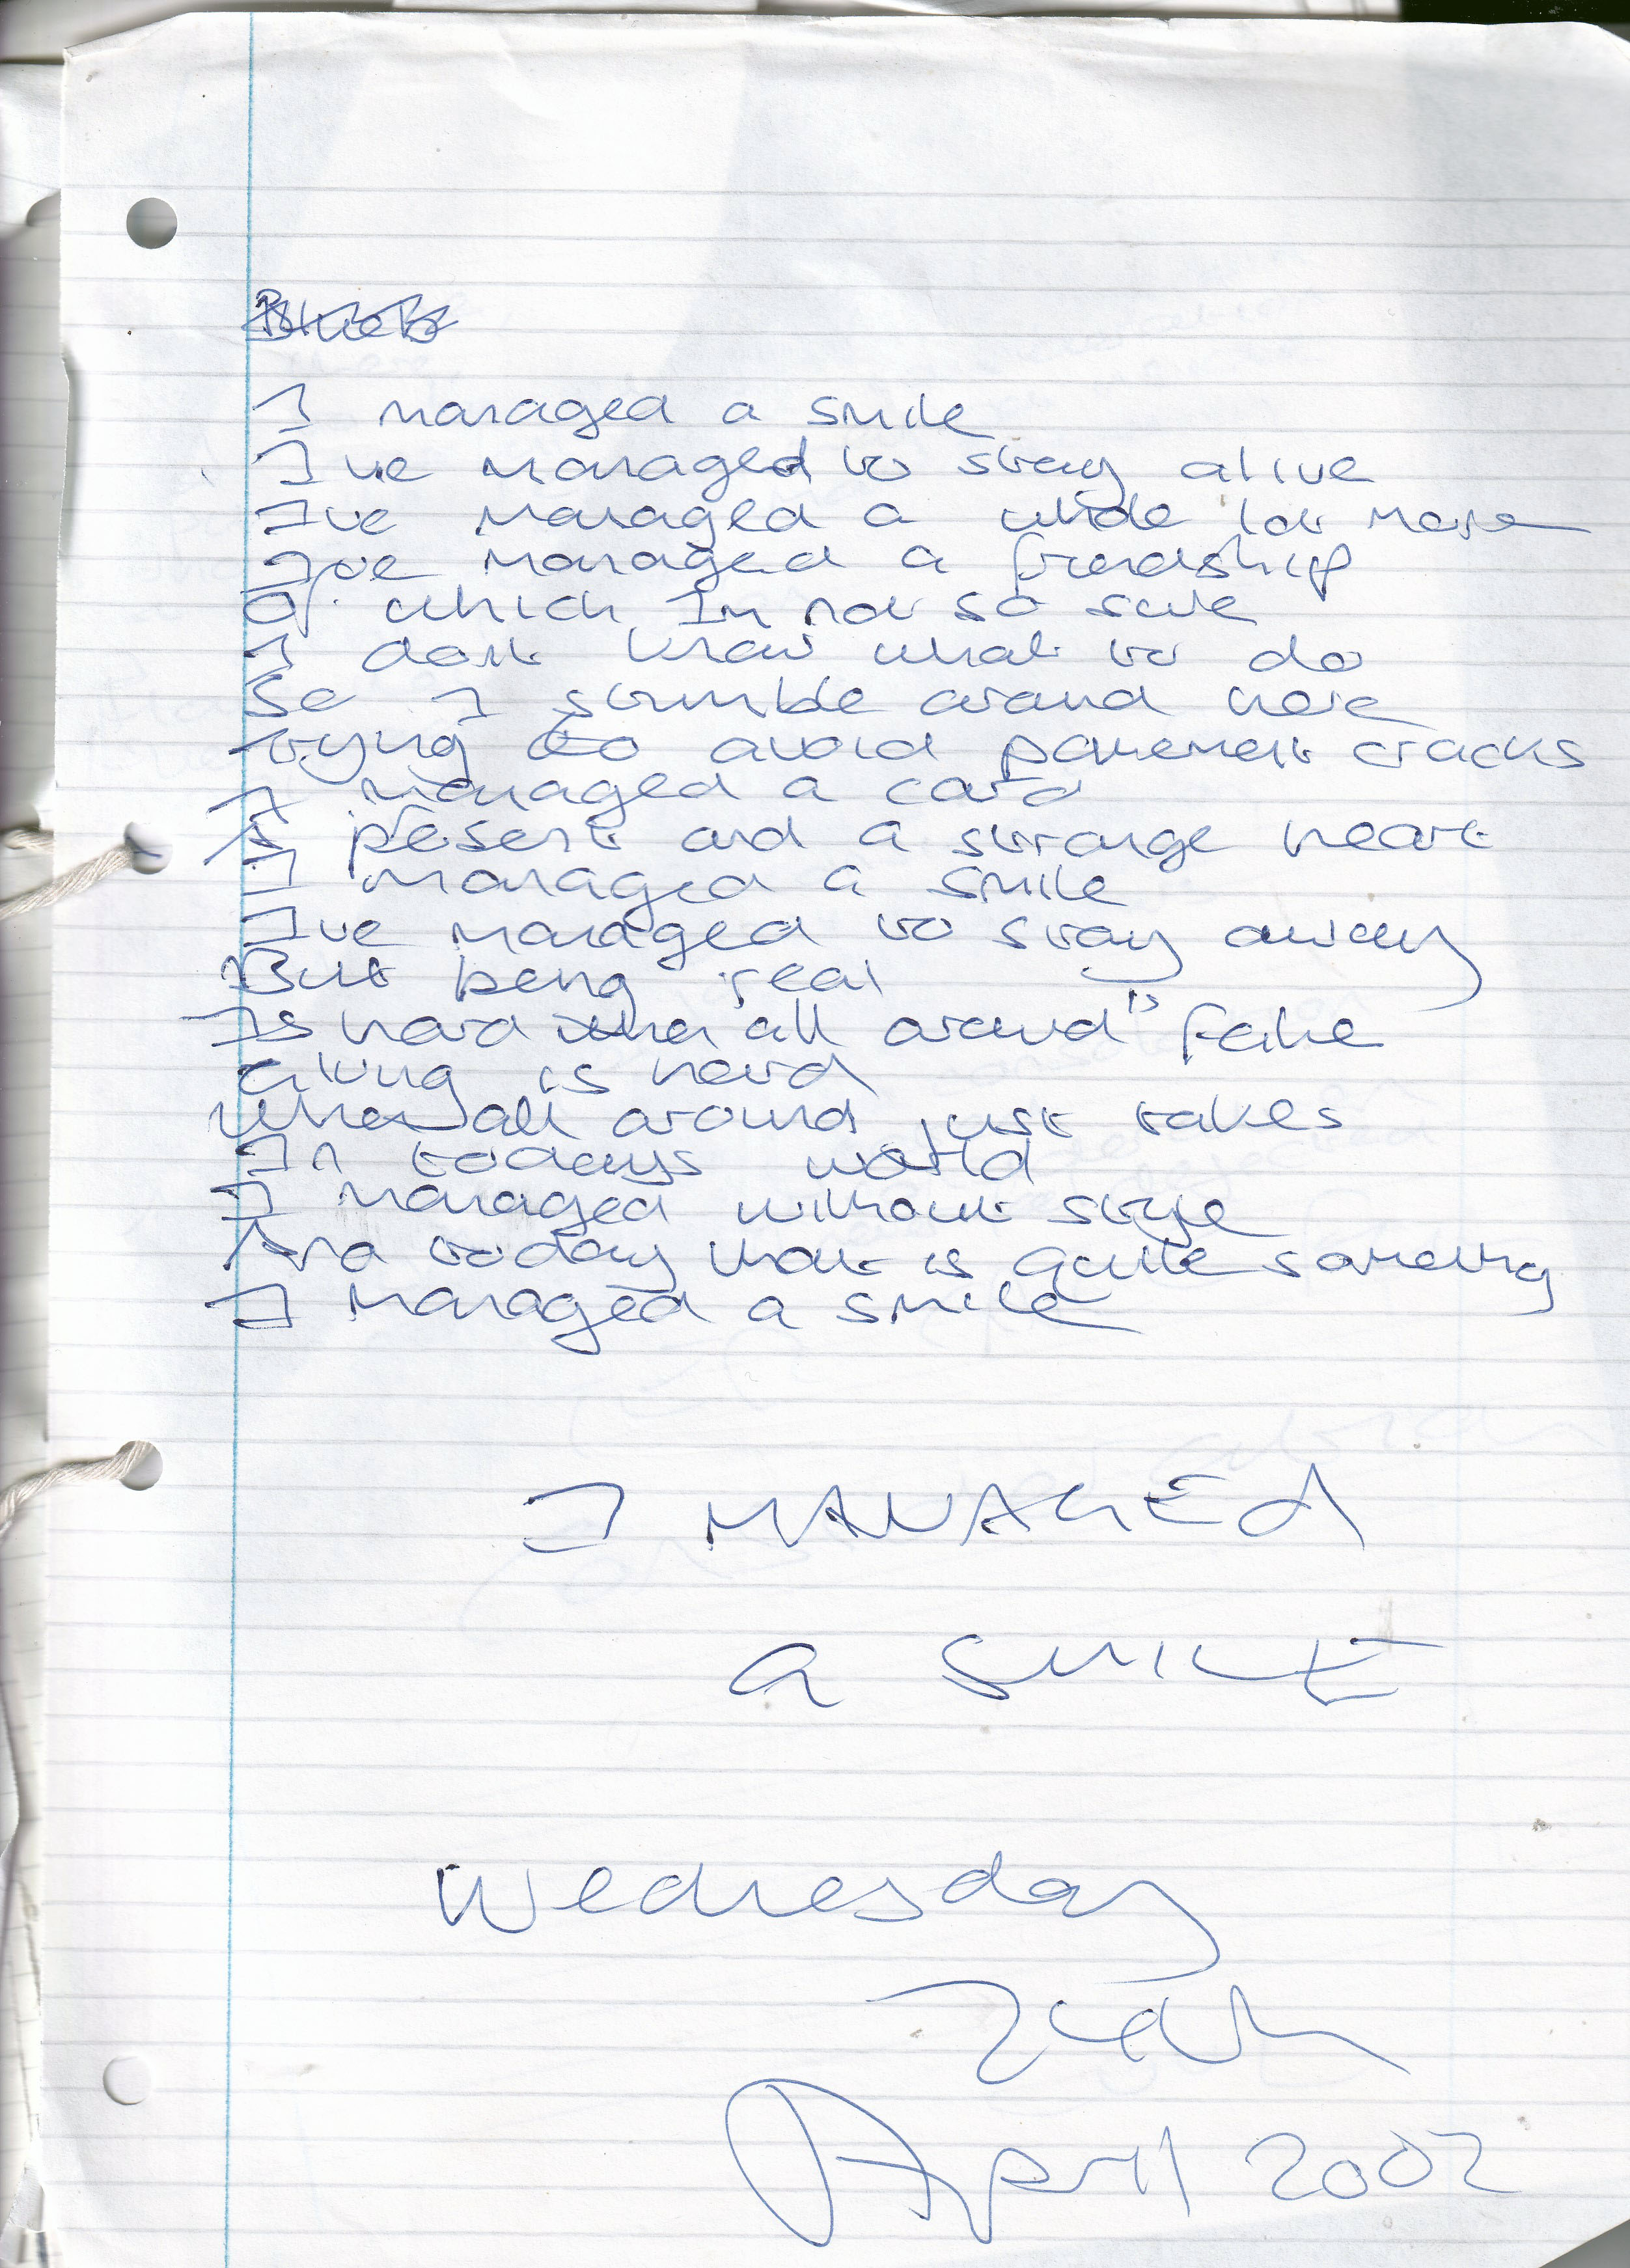 I managed a smile
Ive managed to stay alive
Ive managed a whole lot more
Ive managed a friendship
Of which Im not so sure
I dont know what to do
So I stumble around here
trying to avoid pavement cracks
I managed a card
A present and a strange heart
I managed a smile
Ive managed to stay away
But being real
Is hard when all around" fake
Giving is hard
When all around just takes
In todays world
I managed without style
And today that is quite something
I managed a smile
I MANAGEd
a SMILE
Wednesday
April 2002